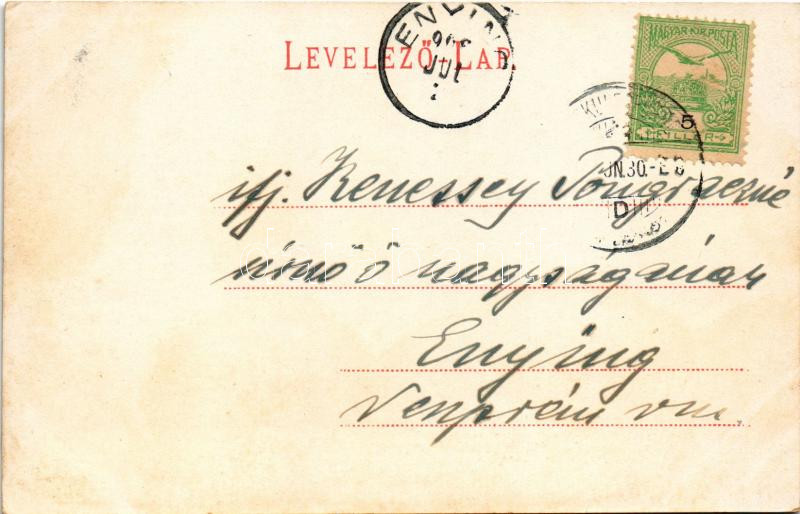 LEVELEZŐ-LAP.
ENYING
906
JUL
MAGYAR KIR. POSTA
5
FILLÉR
JUN.30.
ifj. Kenessey Pongráczné
úrnő ő nagyságának
Enying
Veszprém vm.